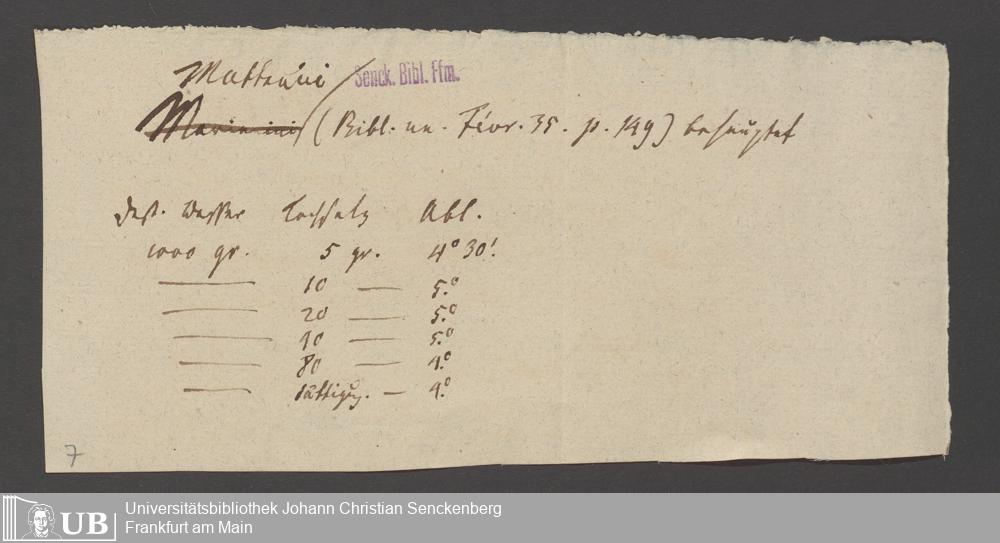 Matteucci / Senck. Bibl. Ffm.
Marianini (Bibl. un. Févr. 35. p. 149) behauptet
Dest. Wasser Kochsalz Abl.
1000 gr. 5 gr. 4° 30!
— 10 — 5.°
— 20 — 5.°
— 40 — 5.°
— 80 — 4.°
— sättigg. — 4.°
7
UB
Universitätsbibliothek Johann Christian Senckenberg
Frankfurt am Main